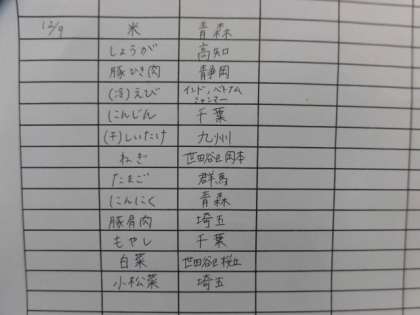 12/9 米 青森
しょうが 高知
豚ひき肉 静岡
(冷)えび インド、ベトナム
ミャンマー
にんじん 千葉
(干)しいたけ 九州
ねぎ 世田谷区岡本
たまご 群馬
にんにく 青森
豚肩肉 埼玉
もやし 千葉
白菜 世田谷区桜丘
小松菜 埼玉